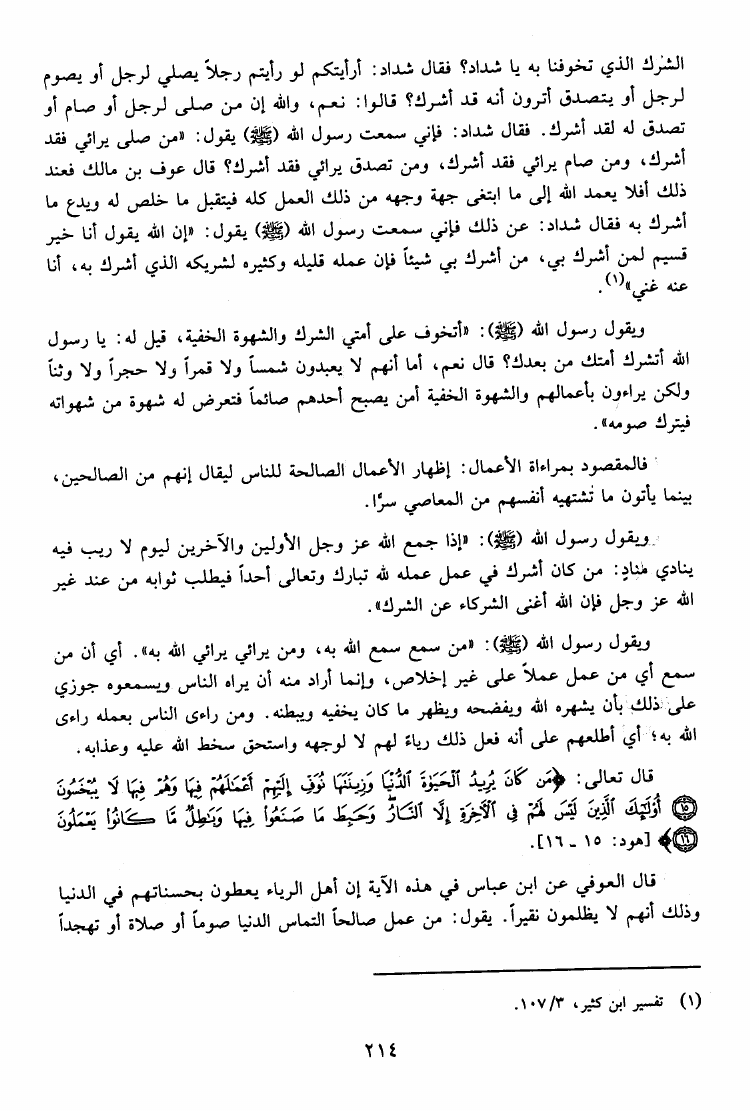 الشرك الذي تخوفنا به يا شداد؟ فقال شداد: أرأيتكم لو رأيتم رجلاً يصلي لرجل أو يصوم
لرجل أو يتصدق أترون أنه قد أشرك؟ قالوا: نعم، والله إن من صلى لرجل أو صام أو
تصدق له لقد أشرك. فقال شداد: فإني سمعت رسول الله (ﷺ) يقول: «من صلى يرائي فقد
أشرك، ومن صام يرائي فقد أشرك، ومن تصدق يرائي فقد أشرك؟ قال عوف بن مالك فعند
ذلك أفلا يعمد الله إلى ما ابتغى جهة وجهه من ذلك العمل كله فيتقبل ما خلص له ويدع ما
أشرك به فقال شداد: عن ذلك فإني سمعت رسول الله (ﷺ) يقول: «إن الله يقول أنا خير
قسيم لمن أشرك بي، من أشرك بي شيئاً فإن عمله قليله وكثيره لشريكه الذي أشرك به، أنا
عنه غني»(١).
ويقول رسول الله (ﷺ): «أتخوف على أمتي الشرك والشهوة الخفية، قيل له: يا رسول
الله أتشرك أمتك من بعدك؟ قال نعم، أما أنهم لا يعبدون شمساً ولا قمراً ولا حجراً ولا وثناً
ولكن يراءون بأعمالهم والشهوة الخفية أمن يصبح أحدهم صائماً فتعرض له شهوة من شهواته
فيترك صومه».
فالمقصود بمراءاة الأعمال: إظهار الأعمال الصالحة للناس ليقال إنهم من الصالحين،
بينما يأتون ما تُشتهيه أنفسهم من المعاصي سرًّا.
ويقول رسول الله (ﷺ): «إذا جمع الله عز وجل الأولين والآخرين ليوم لا ريب فيه
ينادي منادٍ: من كان أشرك في عمل عمله لله تبارك وتعالى أحداً فيطلب ثوابه من عند غير
الله عز وجل فإن الله أغنى الشركاء عن الشرك».
ويقول رسول الله (ﷺ): «من سمع سمع الله به، ومن يرائي يرائي الله به». أي أن من
سمع أي من عمل عملاً على غير إخلاص، وإنما أراد منه أن يراه الناس ويسمعوه جوزي
على ذلك بأن يشهره الله ويفضحه ويظهر ما كان يخفيه ويبطنه. ومن راءى الناس بعمله راءى
الله به؛ أي أطلعهم على أنه فعل ذلك رياءً لهم لا لوجهه واستحق سخط الله عليه وعذابه.
قال تعالى: ﴿مَن كَانَ يُرِيدُ الْحَيَوٰةَ الدُّنْيَا وَزِينَتَهَا نُوَفِّ إِلَيْهِمْ أَعْمَٰلَهُمْ فِيهَا وَهُمْ فِيهَا لَا يُبْخَسُونَ
(١٥) أُوْلَٰٓئِكَ الَّذِينَ لَيْسَ لَهُمْ فِى الْأَخِرَةِ إِلَّا النَّارُ ۖ وَحَبِطَ مَا صَنَعُواْ فِيهَا وَبَٰطِلٌ مَّا كَانُواْ يَعْمَلُونَ
(١٦)﴾ [هود: ١٥ ـ ١٦].
قال العوفي عن ابن عباس في هذه الآية إن أهل الرياء يعطون بحسناتهم في الدنيا
وذلك أنهم لا يظلمون نقيراً. يقول: من عمل صالحاً التماس الدنيا صوماً أو صلاة أو تهجداً
(١) تفسير ابن كثير، ١٠٧/٣.
٢١٤